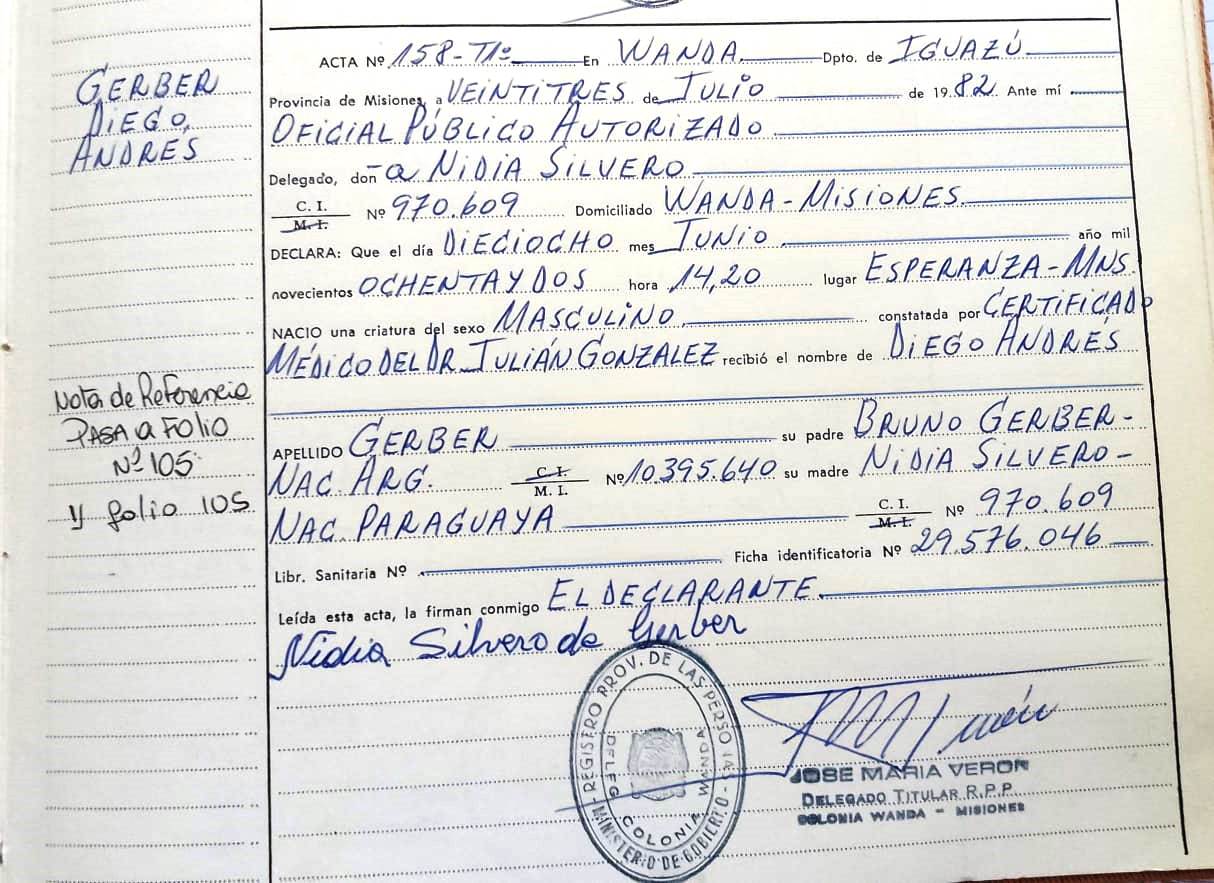 GERBER
DIEGO,
ANDRES
Nota de Referencia
PASA a FOLIO
Nº 105
y folio 105
ACTA Nº 158-T1º En WANDA Dpto. de IGUAZÚ
Provincia de Misiones, a VEINTITRES de JULIO de 1982. Ante mí
OFICIAL PÚBLICO AUTORIZADO
Delegado, don -a NIDIA SILVERO
C. I.
M. I. Nº 970.609 Domiciliado WANDA-MISIONES
DECLARA: Que el día DIECIOCHO mes JUNIO año mil
novecientos OCHENTA Y DOS hora 14,20 lugar ESPERANZA-MNS.
NACIO una criatura del sexo MASCULINO constatada por CERTIFICADO
MÉDICO DEL DR. JULIÁN GONZALEZ recibió el nombre de DIEGO ANDRÉS
APELLIDO GERBER su padre BRUNO GERBER-
NAC. ARG. C. I.
M. I. Nº 10.395.640 su madre NIDIA SILVERO-
NAC. PARAGUAYA C. I.
M. I. Nº 970.609
Libr. Sanitaria Nº Ficha identificatoria Nº 29.576.046
Leída esta acta, la firman conmigo EL DECLARANTE.
Nidia Silvero de Gerber
REGISTRO PROV. DE LAS PERSONAS - MINISTERIO DE GOBIERNO -
DELEG. COLONIA WANDA
JOSE MARIA VERON
DELEGADO TITULAR R.P.P.
COLONIA WANDA - MISIONES